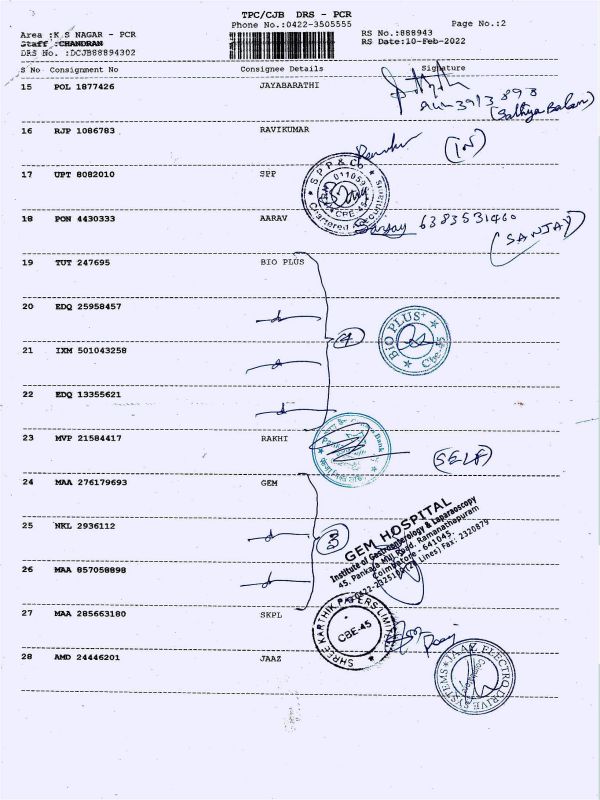 TPC/CJB DRS - PCR
Phone No.:0422-3505555
Page No.:2
Area :K S NAGAR - PCR
RS No.:888943
Staff :CHANDRAN
RS Date:10-Feb-2022
DRS No. :DCJB88894302
S No Consignment No Consignee Details Signature
15 POL 1877426 JAYABARATHI
(Sathya Balan)
16 RJP 1086783 RAVIKUMAR
(IN)
17 UPT 8082010 SPP
S P P & Co
011059
CBE-45
Chartered Accountants
18 PON 4430333 AARAV
Sanjay 6383531460
(SANJAY)
19 TUT 247695 BIO PLUS
20 EDQ 25958457
4
BIO PLUS+
Cbe-45
21 IXM 501043258
22 EDQ 13355621
23 MVP 21584417 RAKHI
(SELF)
24 MAA 276179693 GEM
25 NKL 2936112
3
GEM HOSPITAL
Institute of Gastroenterology & Laparoscopy
45, Pankaja Mill Road, Ramanathapuram
Coimbatore - 641045.
Lines) Fax: 2320879
26 MAA 857058898
27 MAA 285663180 SKPL
SHREE KARTHIK PAPERS LIMITED
CBE-45
28 AMD 24446201 JAAZ
JAAZ ELECTRO DRIVE SYSTEMS